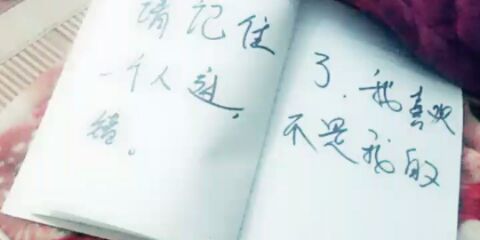 请记住
了.我喜欢
一个人这,
不是我的
错。